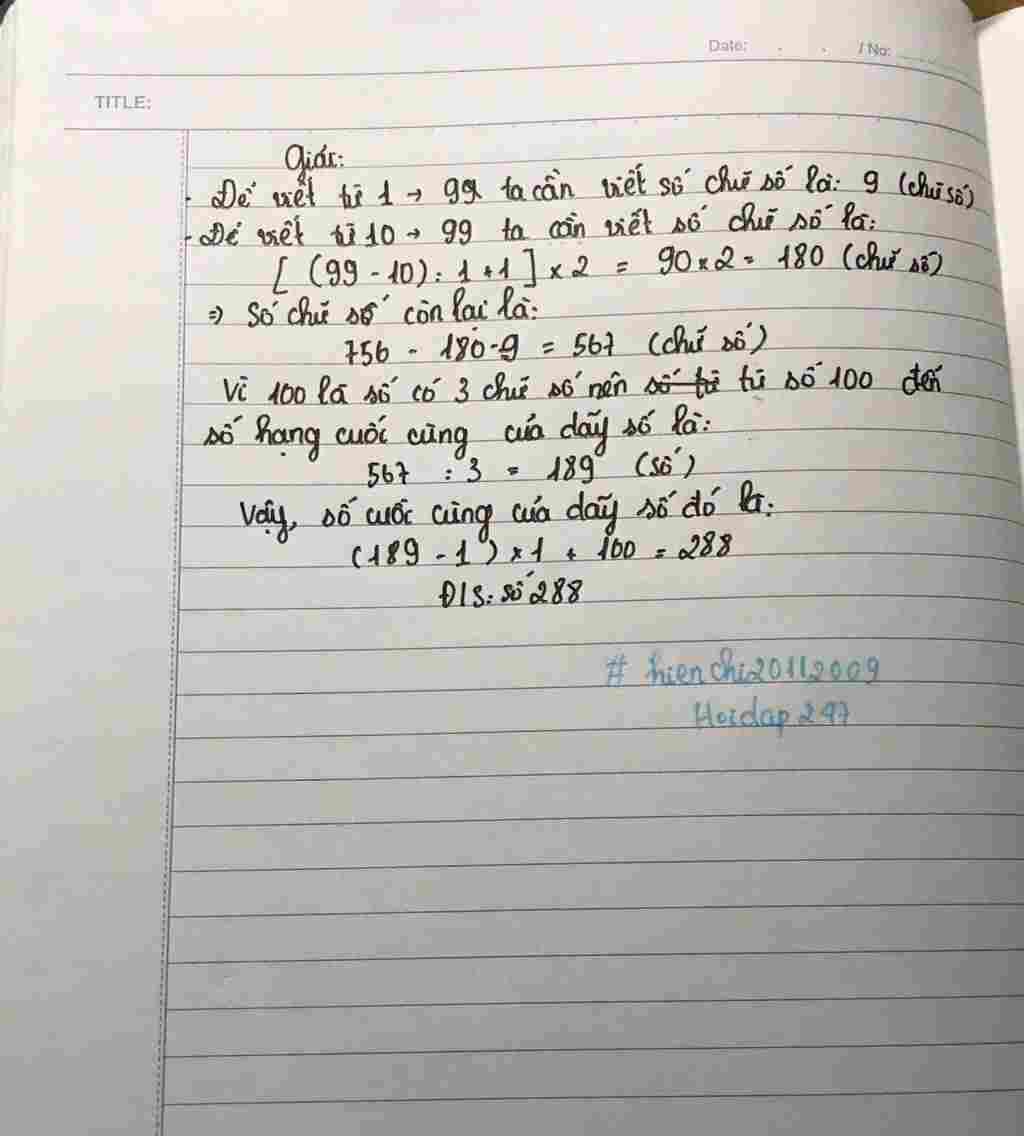 Date: . . / No:
TITLE:
Giải:
- Để viết từ 1 → 99 ta cần viết số chữ số là: 9 (chữ số)
- Để viết từ 10 → 99 ta cần viết số chữ số là:
[ (99 - 10) : 1 + 1 ] × 2 = 90 × 2 = 180 (chữ số)
⇒ Số chữ số còn lại là:
756 - 180 - 9 = 567 (chữ số)
Vì 100 là số có 3 chữ số nên số từ từ số 100 đến
số hạng cuối cùng của dãy số là:
567 : 3 = 189 (số)
Vậy, số cuối cùng của dãy số đó là:
(189 - 1) × 1 + 100 = 288
Đ/S: số 288
# hienchi20112009
Hoidap247